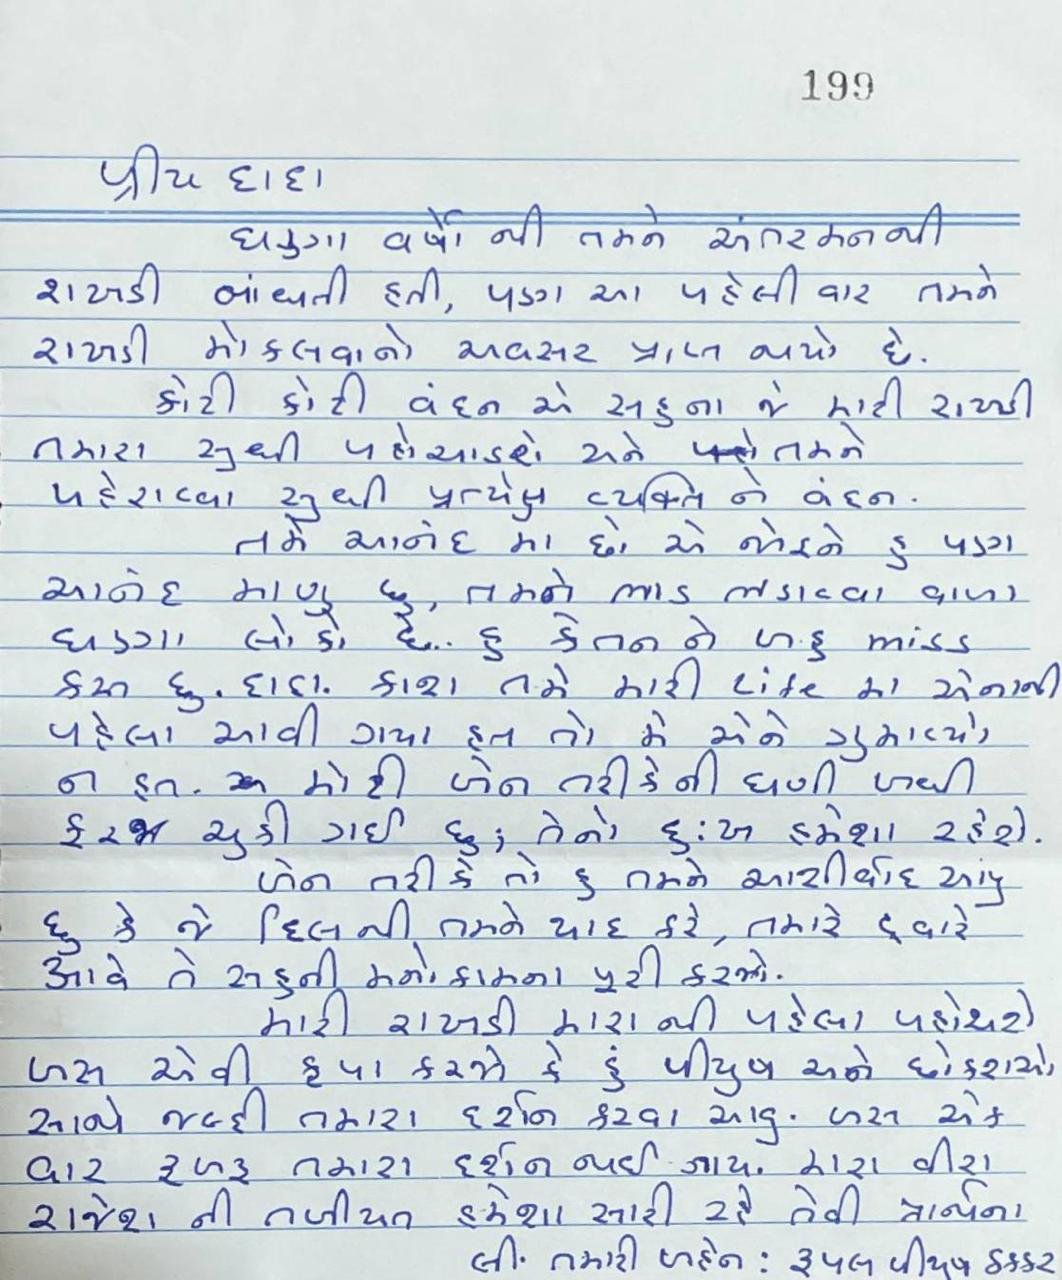 199
પ્રીય દાદા
ઘણા વર્ષો થી તમને અંતરમનથી
રાખડી બાંધતી હતી, પણ આ પહેલી વાર તમને
રાખડી મોકલવાનો અવસર પ્રાપ્ત થયો છે.
કોટી કોટી વંદન એ સહુના જે મારી રાખી
તમારા સુધી પહોચાડશે અને તમને
પહેરાવવા સુધી પ્રત્યેક વ્યક્તિ ને વંદન.
તમે આનંદ મા છો એ જોઇને હુ પણ
આનંદ માણુ છુ, તમને લાડ લડાવવા વાળા
ઘણા લોકો છે.. હુ કેતન ને બહુ miss
કરુ છુ. દાદા. કાશ તમે મારી Life મા એનાથી
પહેલા આવી ગયા હત તો મે એને ગુમાવ્યો
ન હત. મોટી બેન તરીકેની ઘણી બધી
ફરજ ચુકી ગઈ છુ; તેનો દુ:ખ હમેશા રહેશે.
બેન તરીકે તો હુ તમને આશીર્વાદ આપુ
છુ કે જે દિલથી તમને યાદ કરે, તમારે દ્વારે
આવે તે સહુની મનોકામના પૂરી કરજો.
મારી રાખડી મારાથી પહેલા પહોચશે
બસ એવી કૃપા કરજો કે હું પીયુષ અને છોકરાઓ
સાથે જલ્દી તમારા દર્શન કરવા આવુ. બસ એક
વાર રૂબરૂ તમારા દર્શન થઈ જાય. મારા વીરા
રાજેશ ની તબીયત હમેશા સારી રહે તેવી પ્રાર્થના
લી. તમારી બહેન : રૂપલ પીયુષ ઠક્કર